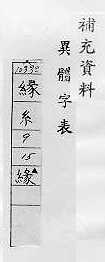 補充資料
異體字表
10390
緣
糸
9
15
緣